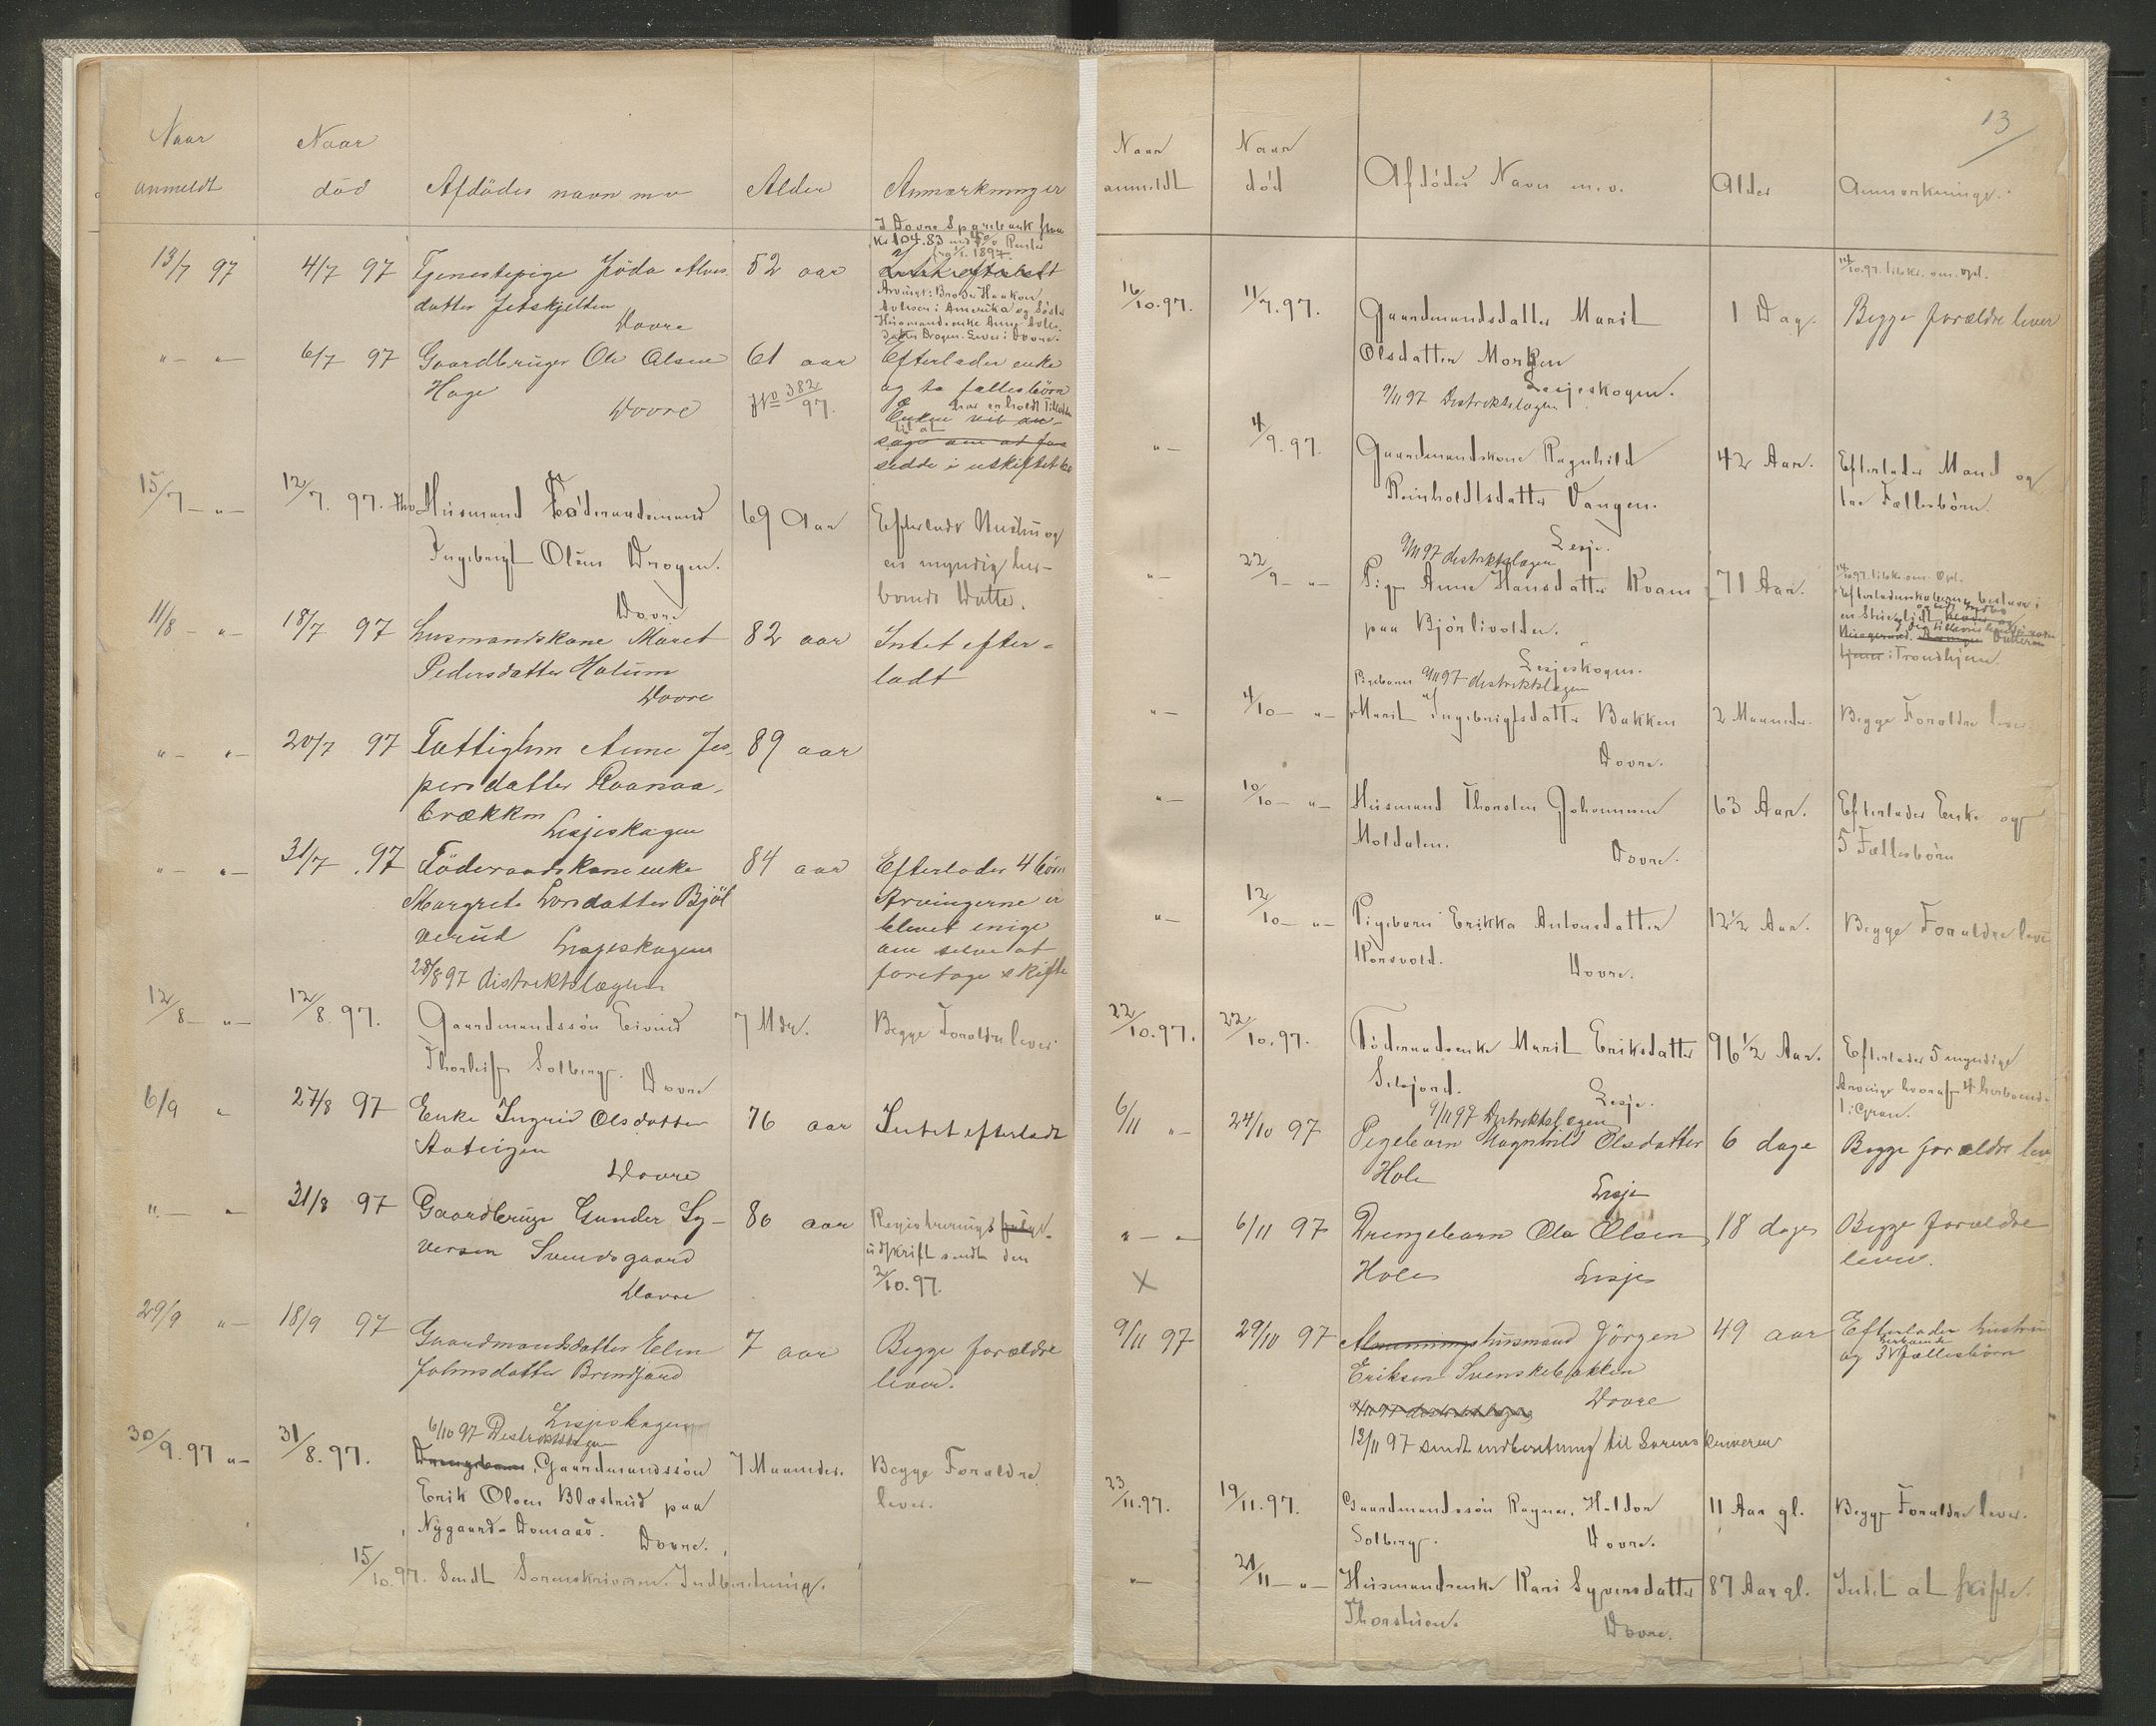 Naar anmeldt
Naar död
Afdödes navn m v
Alder
Anmærkninger
I Dovre Sparebank
Kr 104.83 med Renter
1897.
13/7 97 4/7 97 Tjenestepige Jöda
52 aar
datter Jetskjelten
Dovre
Arving: Broder Haakon
i Amerika og Söster
Husmandsenke Anne
datter Drogen. Lever i Dovre.
" - " - 6/7 97 Gaardbruger Ole Olsen 61 aar Efterlader enke
Hage No 382/97. og to fællesbörn
Dovre
Enken
til at
sidde i uskiftet bo
15/7 - " - 12/7. 97. Husmand Föderaadsmand 69 Aar Efterlader Hustru og
Ingebrigt Olsen Drogen. en myndig her-
Dovre boende Datter.
11/8 - " - 18/7 97 husmandskone Maret 82 aar Intet efter-
Pedersdatter Hatum ladt
Dovre
" - " - 20/7 97 Fattiglem Anne Jes- 89 aar
persdatter Kvanaa-
brækken
Lesjeskogen
" - " - 31/7 97 Föderaadskone enke 84 aar Efterlader 4 börn
Margrete Larsdatter Bjöl Arvingerne er
verud Lesjeskogen blevet enige
om selv at
28/8 97 distriktslægen foretage skifte
12/8 - " - 12/8. 97. Gaardmandssön Eivind 7 Mdr. Begge Forældre lever
Thorleif Solberg. Dovre
6/9 " 27/8 97 Enke Ingrid Olsdatter 76 aar Intet efterladt
Dovre
" - " 31/8 97 Gaardbruger Gunder Sy- 80 aar Registrerings
versen Svendsgaard udskrift sendt den
Dovre 2/10. 97.
29/9 " - 18/9 97 Gaardmandsdatter Elen 7 aar Begge forældre
Johnsdatter Brendjord lever.
Lesjeskogen
6/10 97 Distriktslægen
30/9. 97 " - 31/8. 97. Drengebarn Gaardmandssön 7 Maaneder. Begge Forældre
Erik Olsen Blæstrud paa lever.
Nygaard-Domaas. Dovre.
15/10. 97. Sendt Sorenskriveren Indberetning.
13
Naar anmeldt
Naar död
Afdödes Navn m. v.
Alder
Anmærkninger.
14/10. 97. tilskr. om. Opl.
16/10. 97. 11/7. 97. Gaardmandsdatter Marit 1 Dag. Begge forældre lever
Olsdatter Morken
Lesjeskogen.
9/11 97 Distriktslægen
" - 4/9. 97. Gaardmandskone Ragnhild 42 Aar. Efterlader Mand og
Reinholdtsdatter Vangen. tre Fællesbörn.
Lesje.
9/11 97 distriktslægen
" - 22/9 - " - Pige Anne Hansdatter Kvam 71 Aar. 14/10 97. tilskr. om. Opl.
paa Bjorlivolden.
Lesjeskogen.
i Trondhjem.
Pigebarn 9/11 97 distriktslægen
" - 4/10 - " - Marit Ingebrigtsdatter Bakken 2 Maaneder. Begge Forældre lever.
Dovre.
" - 10/10 - " - Husmand Thorsten Johannesen 63 Aar. Efterlader Enke og
Moldalen. Dovre. 5 Fællesbörn
" - 12/10 - " - Pigebarn Erikka Antonsdatter 12 1/2 Aar. Begge Forældre lever
Korsvold. Dovre.
22/10. 97. 22/10. 97. Föderaadsenke Marit Eriksdatter 96 1/2 Aar. Efterlader 5 myndige
Selsjord. Lesje. Arvinge hvoraf 4 herboende
1 i Gran.
9/11 97 Distriktslægen
6/11 " - 24/10 97 Pigebarn Magnhild Olsdatter 6 dage Begge forældre lever
Hole Lesje
" - " 6/11 97 Drengebarn Ola Olsen 18 dage Begge forældre
Hole Lesje lever.
X
9/11 97 29/10 97 husmand Jörgen 49 aar Efterlader hustru
Eriksen Svenskebakken og 3 herboende fællesbörn
Dovre
9/11 97 distriktslægen
12/11 97 sendt indberetning til Sorenskriveren
23/11. 97. 19/11. 97. Gaardmandssön Ragnar Haldor 11 Aar gl. Begge Forældre lever.
Solberg. Dovre.
" - 21/11 - " - Husmandsenke Kari Syversdatter 87 Aar gl. Intet at skifte.
Thorstuen. Dovre.